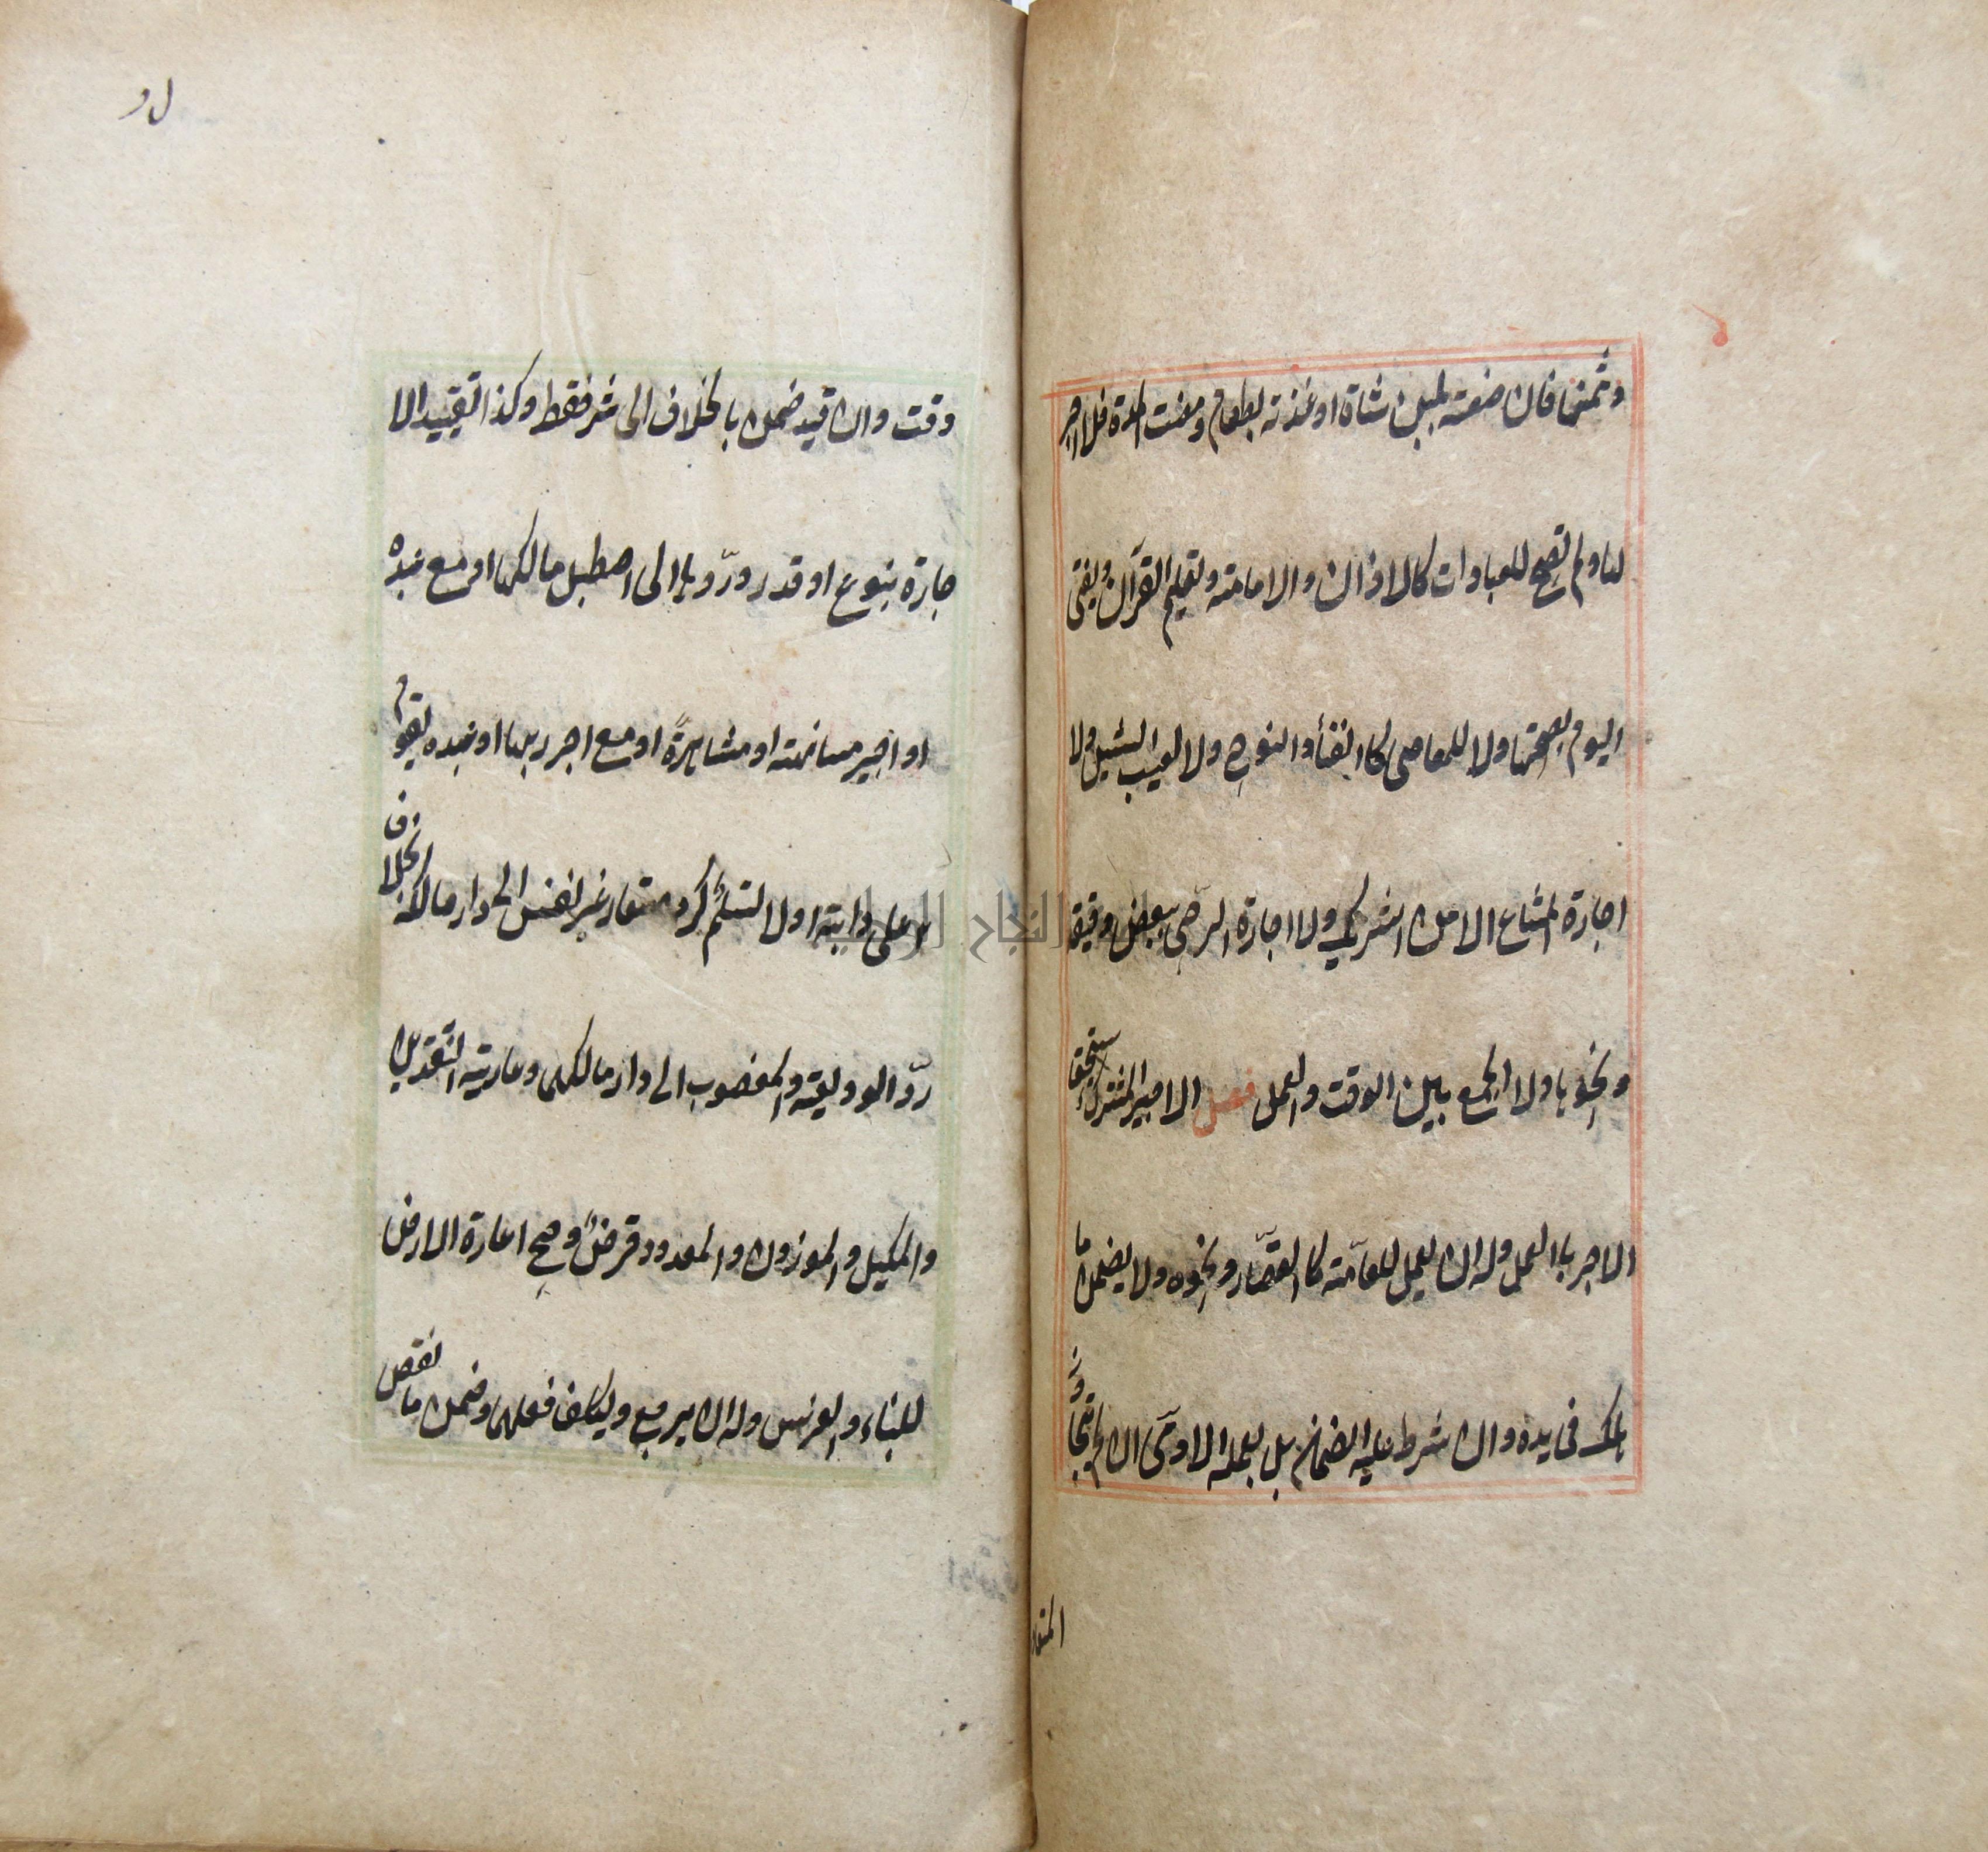 وثمنها فان ضعته بلبن شاة او غذته بطعام ومضت المدة فلا اجر
لها ولم تصح للعبادات كالاذان والامامة وتعليم القرآن ويفتى
اليوم بصحتها ولا للمعاصى كالغنأ والنوح ولا لعيب التيس ولا
اجارة المشاع الا من الشريك ولا اجارة الرحى ببعض دقيقه
ونحوها ولا الجمع بين الوقت والعمل فصل الاجير المشترك يستحق
الاجر بالعمل وله ان يعمل للعامّة كالقصّار ونحوه ولا يضمن ما
هلك فى يده وان شرط عليه الضمان بل بعمله الا دمى ان لم يتجاوز
المتعا
وقت وان قيد ضمن بالخلاف الى شر فقط وكذا تقييد الا
جارة بنوع او قدر وردّها الى اصطبل مالكها او مع عبده
او اجير مسانهة او مشاهرةً او مع اجر ربها او عبده يقوم
على دابته اولا لتسلّم كرد مستعار غير نفيس الى دار مالكه بخلاف
ردّ الوديعة والمغصوب الى دار مالكهما وعارية النقدين
والمكيل والموزون والمعدود قرضٌ وصح اعارة الارض
للبناء والغرس وله ان يرجع ويكلف قلعهما وضمن ما نقص